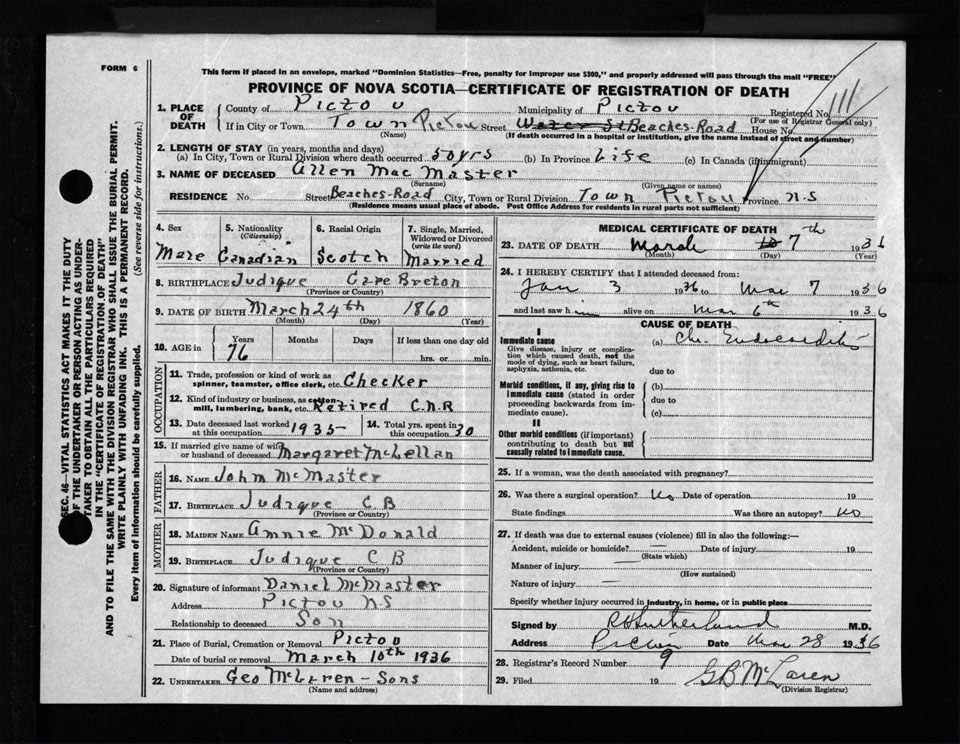 FORM 6
This form if placed in an envelope, marked "Dominion Statistics—Free, penalty for improper use $300," and properly addressed will pass through the mail "FREE"
PROVINCE OF NOVA SCOTIA—CERTIFICATE OF REGISTRATION OF DEATH
1. PLACE OF DEATH
County of Pictou Municipality of Pictou Registered No. 111
(For use of Registrar General only)
If in City or Town Town Pictou Street Water St Beaches-Road House No.
(Name) (If death occurred in a hospital or institution, give the name instead of street and number)
2. LENGTH OF STAY (in years, months and days)
(a) In City, Town or Rural Division where death occurred 50 yrs (b) In Province Life (c) In Canada (if immigrant)
3. NAME OF DECEASED Allen Mac Master
(Surname) (Given name or names)
RESIDENCE No. Street Beaches-Road City, Town or Rural Division Town Pictou Province N-S
(Residence means usual place of abode. Post Office Address for residents in rural parts not sufficient)
4. Sex Male
5. Nationality (Citizenship) Canadian
6. Racial Origin Scotch
7. Single, Married, Widowed or Divorced (write the word) Married
8. BIRTHPLACE Judique Cape Breton
(Province or Country)
9. DATE OF BIRTH March 24th 1860
(Month) (Day) (Year)
10. AGE in Years Months Days If less than one day old
76 hrs. or min.
OCCUPATION
11. Trade, profession or kind of work as spinner, teamster, office clerk, etc. Checker
12. Kind of industry or business, as cotton mill, lumbering, bank, etc. Retired C.N.R
13. Date deceased last worked at this occupation 1935
14. Total yrs. spent in this occupation 30
15. If married give name of wife or husband of deceased Margaret McLellan
FATHER
16. NAME John McMaster
17. BIRTHPLACE Judique C.B
(Province or Country)
MOTHER
18. MAIDEN NAME Annie McDonald
19. BIRTHPLACE Judique C B
(Province or Country)
20. Signature of informant Daniel McMaster
Address Pictou N S
Relationship to deceased Son
21. Place of Burial, Cremation or Removal Pictou
Date of burial or removal March 10th 1936
22. UNDERTAKER Geo McLaren - Sons
(Name and address)
MEDICAL CERTIFICATE OF DEATH
23. DATE OF DEATH March 7th 1936
(Month) (Day) (Year)
24. I HEREBY CERTIFY that I attended deceased from:
Jan 3 1936 to Mar 7 1936
and last saw him alive on Mar 6th 1936
CAUSE OF DEATH
I
Immediate cause
Give disease, injury or complication which caused death, not the mode of dying, such as heart failure, asphyxia, asthenia, etc.
(a) Chr. Endocarditis
due to
Morbid conditions, if any, giving rise to immediate cause (stated in order proceeding backwards from immediate cause).
(b)
due to
(c)
II
Other morbid conditions (if important) contributing to death but not causally related to immediate cause.
25. If a woman, was the death associated with pregnancy?
26. Was there a surgical operation? No Date of operation 19
State findings Was there an autopsy? No
27. If death was due to external causes (violence) fill in also the following:—
Accident, suicide or homicide? — Date of injury 19
(State which)
Manner of injury —
(How sustained)
Nature of injury —
Specify whether injury occurred in industry, in home, or in public place
Signed by R H Sutherland M.D.
Address Pictou Date Mar 28 1936
28. Registrar's Record Number 9
29. Filed 19 G B McLaren
(Division Registrar)
SEC. 46—VITAL STATISTICS ACT MAKES IT THE DUTY
OF THE UNDERTAKER OR PERSON ACTING AS UNDERTAKER
TO OBTAIN ALL THE PARTICULARS REQUIRED
IN THE "CERTIFICATE OF REGISTRATION OF DEATH"
AND TO FILE THE SAME WITH THE DIVISION REGISTRAR WHO SHALL ISSUE THE BURIAL PERMIT.
WRITE PLAINLY WITH UNFADING INK. THIS IS A PERMANENT RECORD.
Every item of information should be carefully supplied. (See reverse side for instructions.)